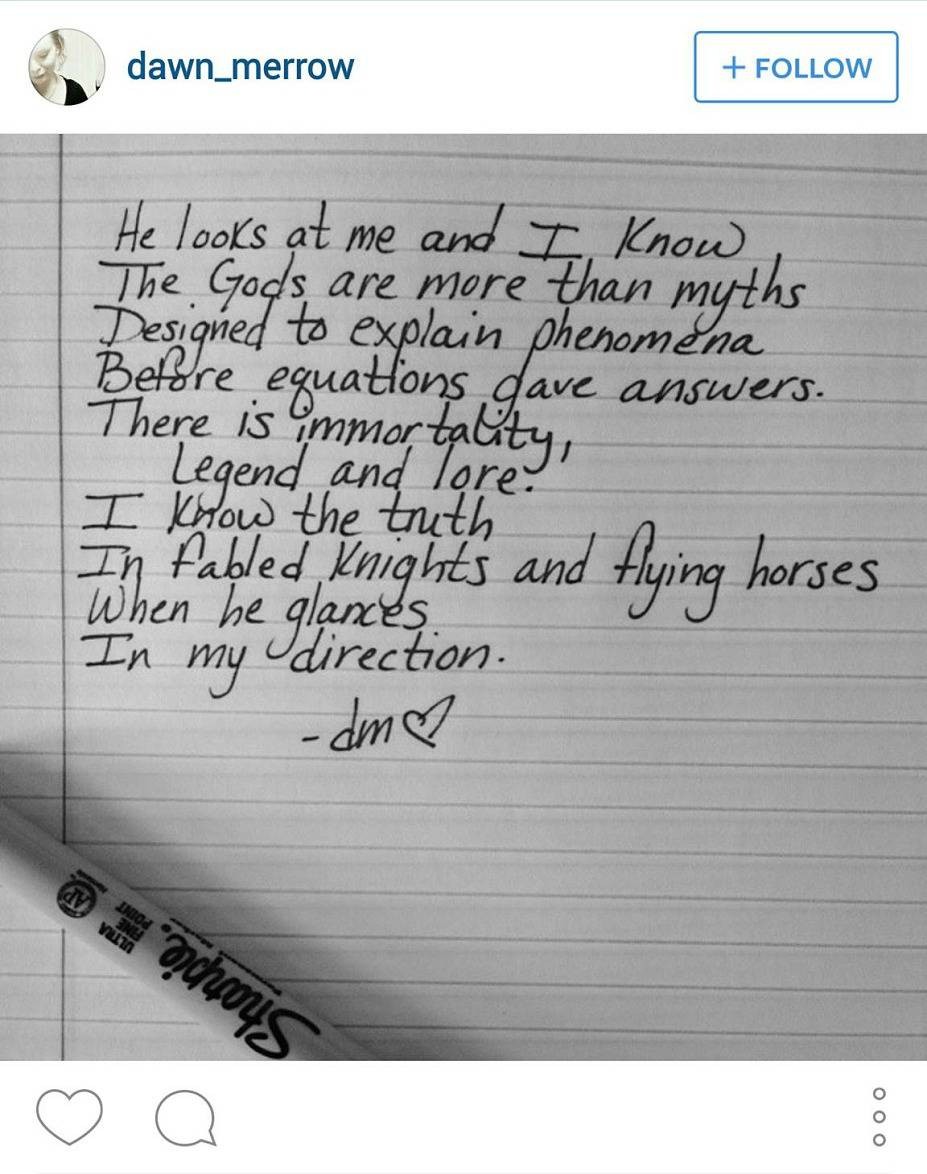 dawn_merrow
+ FOLLOW
He looks at me and I Know,
The Gods are more than myths
Designed to explain phenomena
Before equations gave answers.
There is immortality,
Legend and lore.
I Know the truth
In fabled Knights and flying horses
When he glances
In my direction.
-dm♡
AP
ULTRA
FINE
POINT
Sharpie